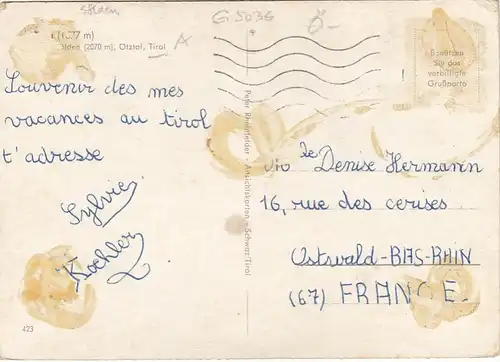 Sölden
G 5036
ı (1377 m)
ölden (2070 m), Ötztal, Tirol
A
Souvenir des mes
vacances au tirol
t'adresse
Sylvie
Kochler
423
Peter Rheinfelder - Ansichtskarten - Schwaz/Tirol
Benützen
Sie das
verbilligte
Grußporto
Denise Hermann
16, rue des cerises
Ostswald-BAS-RHIN
(67) FRANCE.